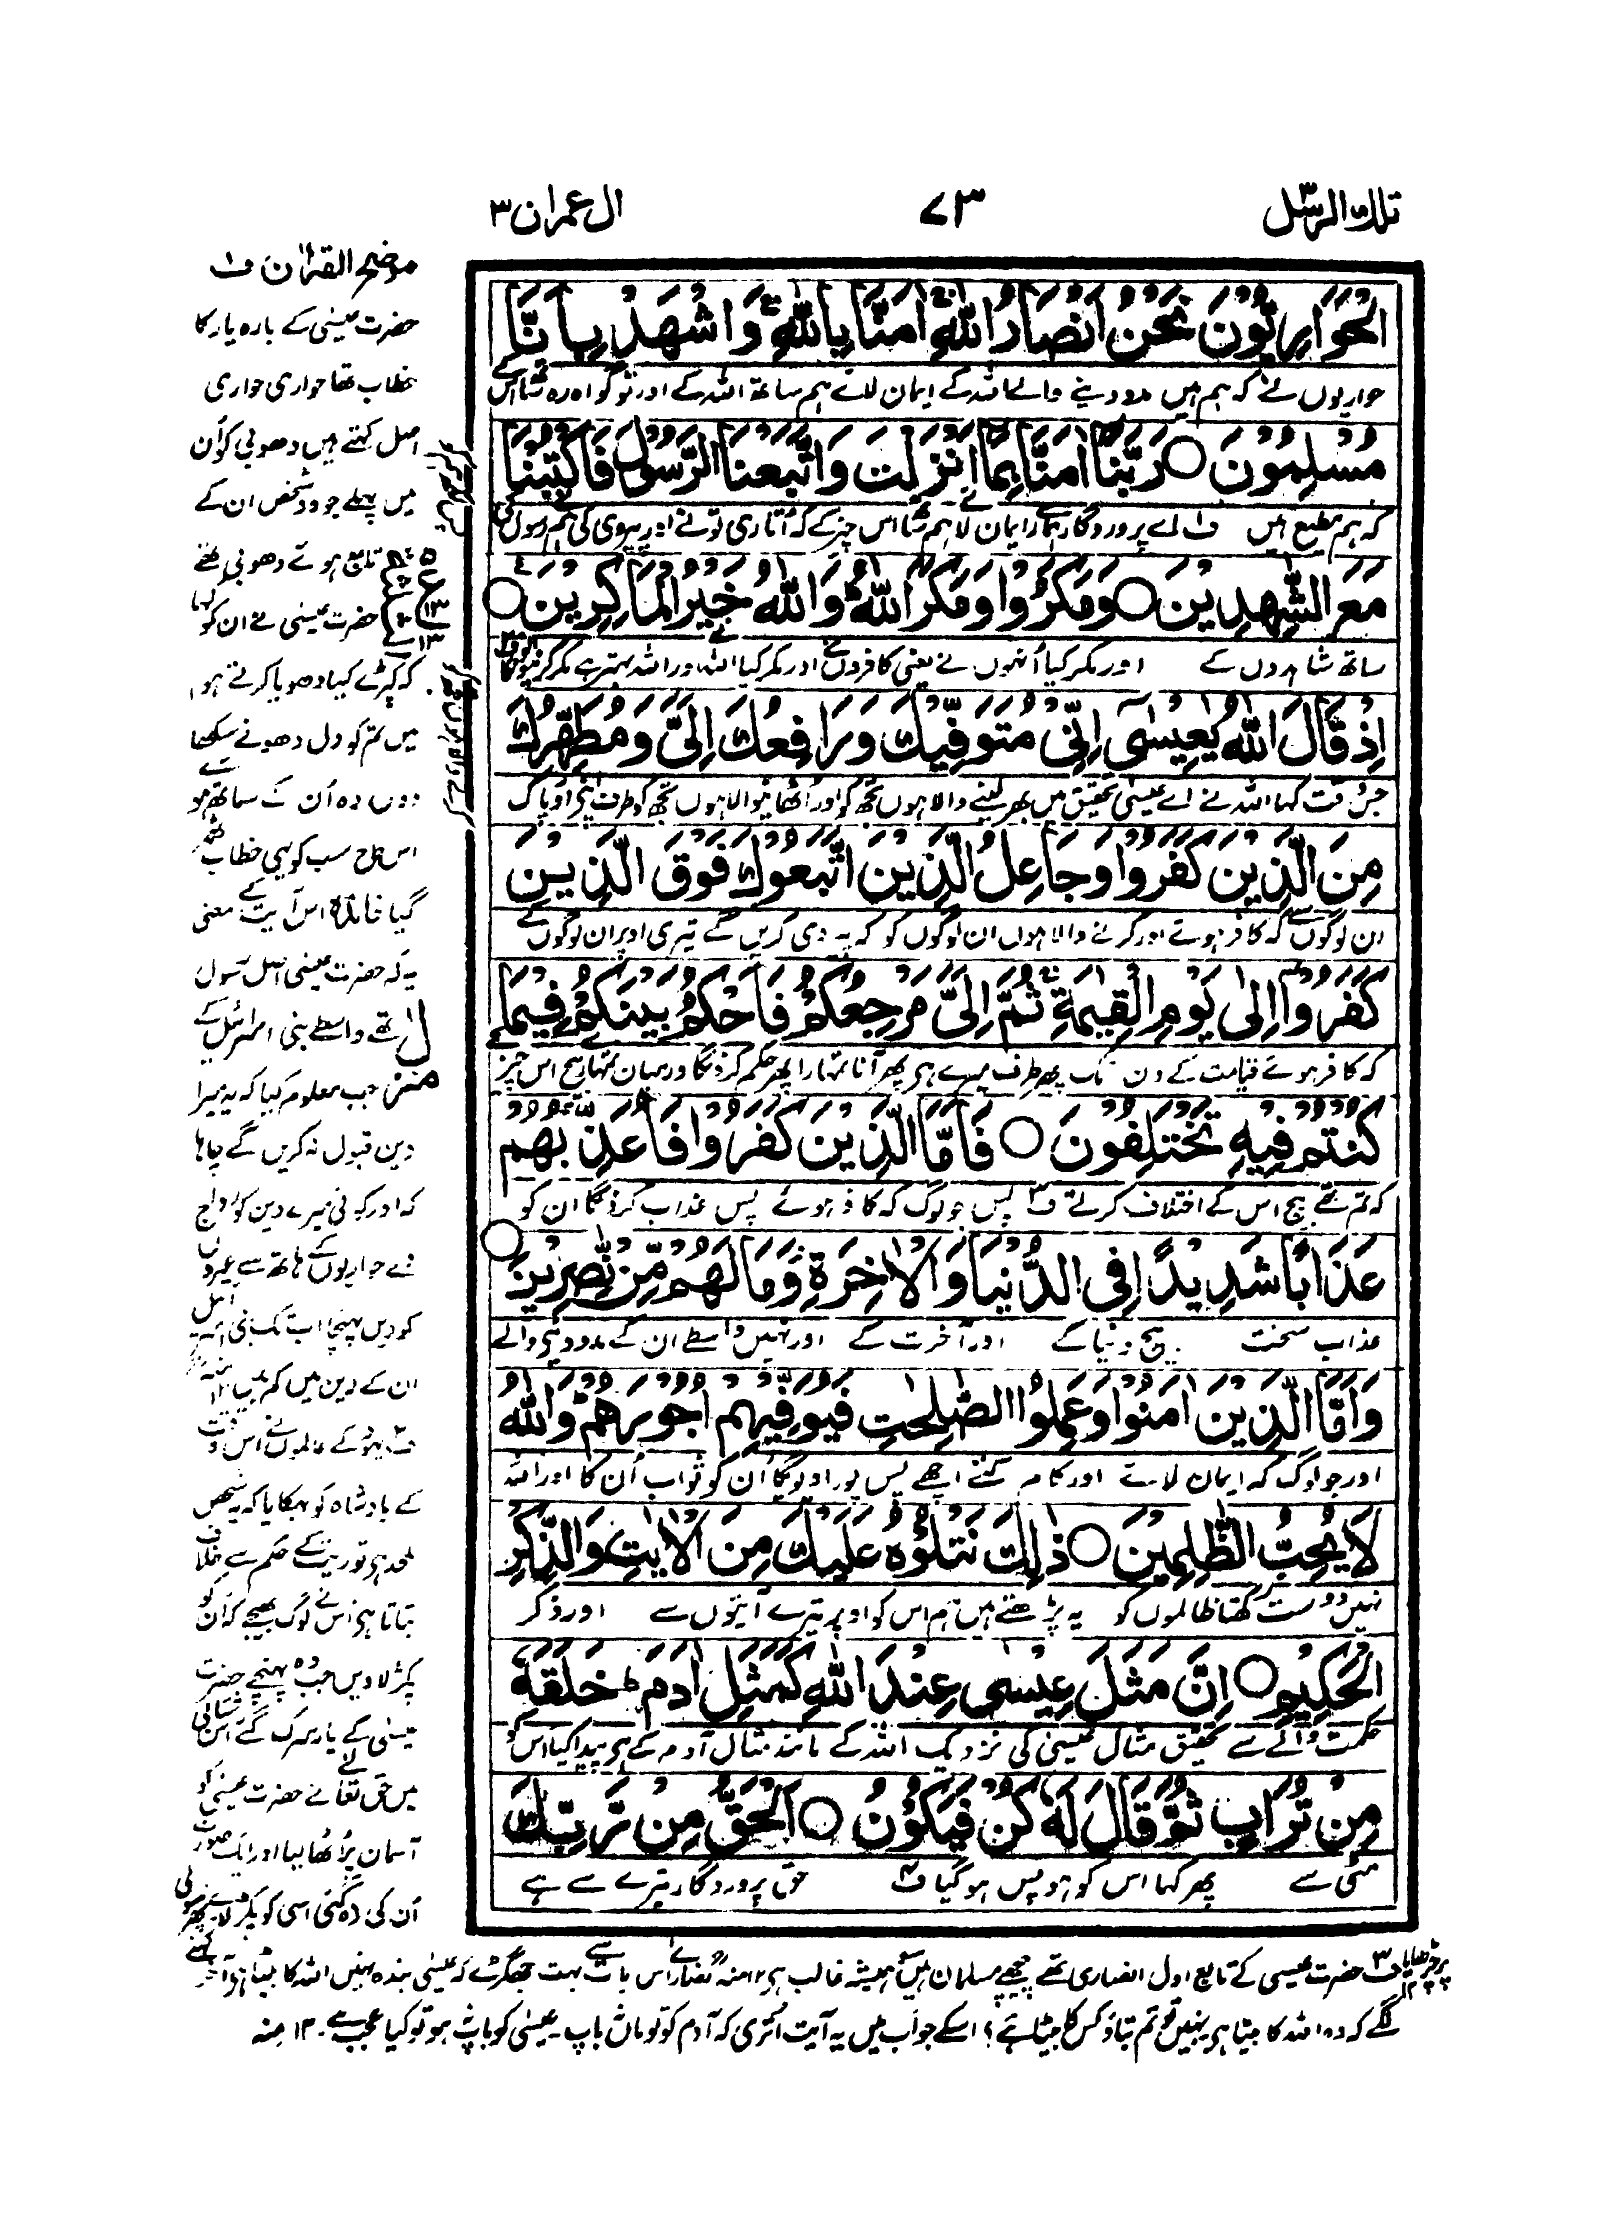 تلك الرسل ٣
٧٣
ال عمران ٣
الْحَوَارِيُّونَ نَحْنُ أَنْصَارُ اللّٰهِ اٰمَنَّا بِاللّٰهِ وَاشْهَدْ بِاَنَّا
حواریوں نے کہ ہم ہیں مدد دینے والے اللہ کے ایمان لائے ہم ساتھ اللہ کے اور تو گواہ رہ ساتھ اس کے
مُسْلِمُوْنَ ○ رَبَّنَا اٰمَنَّا بِمَا اَنْزَلْتَ وَاتَّبَعْنَا الرَّسُوْلَ فَاكْتُبْنَا
کہ ہم مطیع ہیں ف۱ اے پروردگار ہمارے ایمان لائے ہم ساتھ اس چیز کے کہ اُتاری تو نے اور پیروی کی ہم نے رسول کی
مَعَ الشّٰهِدِيْنَ ○ وَمَكَرُوْا وَمَكَرَ اللّٰهُ ط وَاللّٰهُ خَيْرُ الْمَاكِرِيْنَ ○
ساتھ شاہدوں کے اور مکر کیا اُنہوں نے یعنی کافروں نے اور مکر کیا اللہ نے اور اللہ بہتر ہے مکر کرنیوالوں کا
اِذْ قَالَ اللّٰهُ يٰعِيْسٰى اِنِّىْ مُتَوَفِّيْكَ وَرَافِعُكَ اِلَىَّ وَمُطَهِّرُكَ
جس وقت کہا اللہ نے اے عیسٰی تحقیق میں پھر لینے والا ہوں تجھ کو اور اُٹھانیوالا ہوں تجھ کو طرف اپنی اور پاک
مِنَ الَّذِيْنَ كَفَرُوْا وَجَاعِلُ الَّذِيْنَ اتَّبَعُوْكَ فَوْقَ الَّذِيْنَ
ان لوگوں سے کہ کافر ہوئے اور کرنے والا ہوں ان لوگوں کو کہ پیروی کریں گے تیری اوپر ان لوگوں کے
كَفَرُوْا اِلٰى يَوْمِ الْقِيٰمَةِ ثُمَّ اِلَىَّ مَرْجِعُكُمْ فَاَحْكُمُ بَيْنَكُمْ فِيْمَا
کہ کافر ہوئے قیامت کے دن تک پھر طرف میرے ہی پھر آنا تمہارا پھر حکم کروں گا درمیان تمہارے بیچ اس چیز کے
كُنْتُمْ فِيْهِ تَخْتَلِفُوْنَ ○ فَاَمَّا الَّذِيْنَ كَفَرُوْا فَاُعَذِّبُهُمْ
کہ تم تھے بیچ اس کے اختلاف کرتے ف۳ پس جو لوگ کہ کافر ہوئے پس عذاب کروں گا ان کو
عَذَابًا شَدِيْدًا فِى الدُّنْيَا وَالْاٰخِرَةِ وَمَا لَهُمْ مِّنْ نّٰصِرِيْنَ ○
عذاب سخت بیچ دنیا کے اور آخرت کے اور نہیں واسطے ان کے مدد دینے والے
وَاَمَّا الَّذِيْنَ اٰمَنُوْا وَعَمِلُوا الصّٰلِحٰتِ فَيُوَفِّيْهِمْ اُجُوْرَهُمْ ط وَاللّٰهُ
اور جو لوگ کہ ایمان لائے اور کام کئے اچھے پس پورا دیوےگا اُن کو ثواب اُن کا اور اللہ
لَا يُحِبُّ الظّٰلِمِيْنَ ○ ذٰلِكَ نَتْلُوْهُ عَلَيْكَ مِنَ الْاٰيٰتِ وَالذِّكْرِ
نہیں دوست رکھتا ظالموں کو یہ پڑھتے ہیں ہم اس کو اوپر تیرے آیتوں سے اور ذکر
الْحَكِيْمِ ○ اِنَّ مَثَلَ عِيْسٰى عِنْدَ اللّٰهِ كَمَثَلِ اٰدَمَ ط خَلَقَهٗ
حکمت والے سے تحقیق مثال عیسٰی کی نزدیک اللہ کے مانند مثال آدم کے ہی پیدا کیا اس کو
مِنْ تُرَابٍ ثُمَّ قَالَ لَهٗ كُنْ فَيَكُوْنُ ○ اَلْحَقُّ مِنْ رَّبِّكَ
مٹی سے پھر کہا اس کو ہو پس ہو گیا ف۴ حق پروردگار تیرے سے ہے
موضح القرآن ف۱
حضرت عیسٰی کے بارہ یار کا
خطاب تھا حواری حواری
اصل کہتے ہیں دھوبی کو اُن
میں پہلے جو دو شخص ان کے
تابع ہوئے دھوبی تھے
حضرت عیسٰی نے ان کو کہا
کہ کپڑے کیا دھویا کرتے ہو
میں تم کو دل دھونے سکھا
دوں وہ اُن کے ساتھ ہوئے
اس طرح سب کو یہی خطاب
گیا فائدہ اس آیت کے معنی
یہ کہ حضرت عیسٰی اصل رسول
تھے واسطے بنی اسرائیل کے
جب معلوم کیا کہ یہ میرا
دین قبول نہ کریں گے چاہا
کہ اور کوئی میرے دین کو رواج
دے حواریوں کے ہاتھ سے
ان کے دین میں کم ہیں ۱۲ منہ
ف۲ یہود کے عالموں نے اس وقت
کے بادشاہ کو بہکایا کہ یہ شخص
ملحد ہی توریت کے حکم سے خلاف
بتاتا ہی اس نے لوگ بھیجے کہ اُن کو
پکڑ لاویں جب وہ پہنچے حضرت
عیسٰی کے یار سرک گئے اس شتابی
میں حق تعالٰے نے حضرت عیسٰی کو
آسمان پر اُٹھا لیا اور ایک صورت
اُن کی رہ گئی اسی کو پکڑ لائے پھر سولی
پر چڑھایا ۱۲ ف۳ حضرت عیسٰی کے تابع اول نصاریٰ تھے پیچھے مسلمان ہیں سو ہمیشہ غالب ہی ۱۲ منہ ف۴ نصاریٰ اس بات سے بہت جھگڑے کہ عیسٰی بندہ نہیں اللہ کا بیٹا ہی آخر کہنے
لگے کہ وہ اللہ کا بیٹا ہی نہیں تو تم بتاؤ کس کا بیٹا ہے؟ اسکے جواب میں یہ آیت اُتری کہ آدم کو تو ماں نہ باپ۔ عیسٰی کو باپ نہ ہو تو کیا عجب ہے۔ ۱۲ منہ